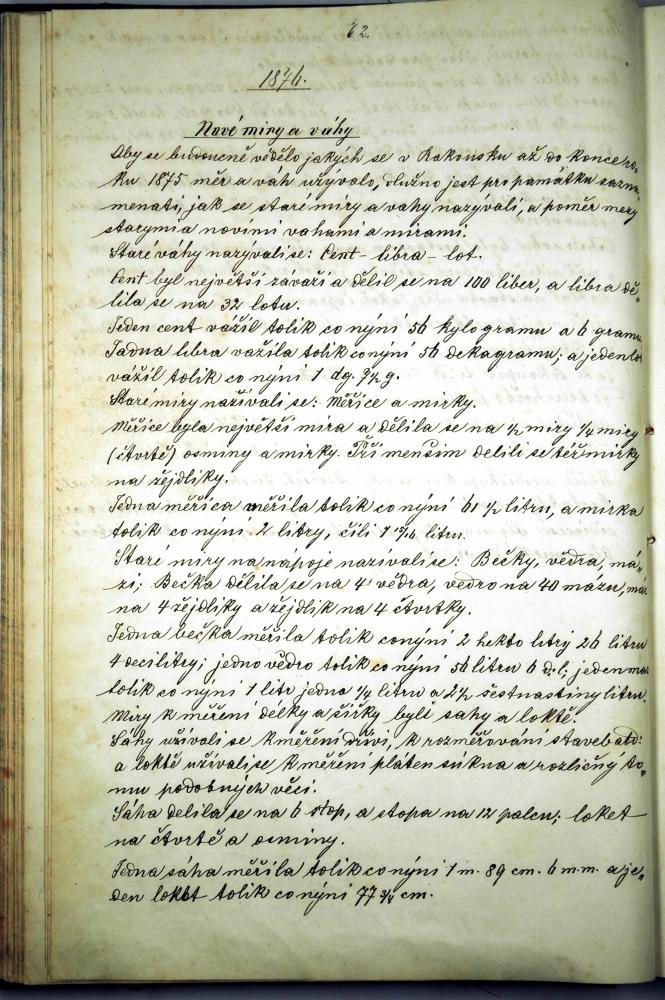 62.
1876.
Nové míry a váhy
Aby se budoucně vědělo jakých se v Rakousku až do konce ro„
ku 1875 měr a váh užývalo, dlužno jest pro památku zazna„
menati, jak se staré míry a vahy nazývali, a poměr mezy
starymi a novími vahami a mírami.
Staré váhy nazývali se: Cent – libra – lot.
Cent byl největší závaží a dělil se na 100 liber, a libra dě„
lila se na 32 lotu.
Jeden cent vážil tolik co nýní 56 kylogramu a 6 gramu
Jadna libra važila tolik co nýní 56 dekagramu; a jeden lot
vážil tolik co nýní 1 dg. 7½ g.
Staré míry nazívali se: Měřice a mirky.
Měřice byla největší míra a dělila se na ½ míry ¼ míry
(čtvrtě) osminy a mirky. Při menším delili se též mirky
na žejdlíky.
Jedna měřica měřila tolik co nýní 61 ½ litru, a mirka
tolik co nýní 2 litry, čili 1 15/16 litru.
Staré míry na nápoje nazívali se: Bečky, vědra, má„
zi; Bečka dělila se na 4 vědra, vedro na 40 mázu, máz
na 4 žejdlíky a žejdlík na 4 čtvrtky.
Jedna bečka měřila tolik co nýní 2 hekto litry 26 litru
4 decilitry; jedno vědro tolik co nýní 56 litru 6 d.l.; jeden maz
tolik co nýní 1 litr jednu ¼ litru a 2½ šestnastiny litru.
Míry k měření delky a šířky byli sahy a loktě.
Sáhy užívali se k měření dříví, k rozměřování staveb atd:
a loktě užívali se k měření pláten sukna a rozličný to„
mu podobných věcí.
Sáha delila se na 6 stop, a stopa na 12 palcu; loket
na čtvrtě a osminy.
Jedna sáha měřila tolik co nýní 1 m. 89 cm. 6 m.m. a je„
den loket tolik co nýní 77 ¾ cm.